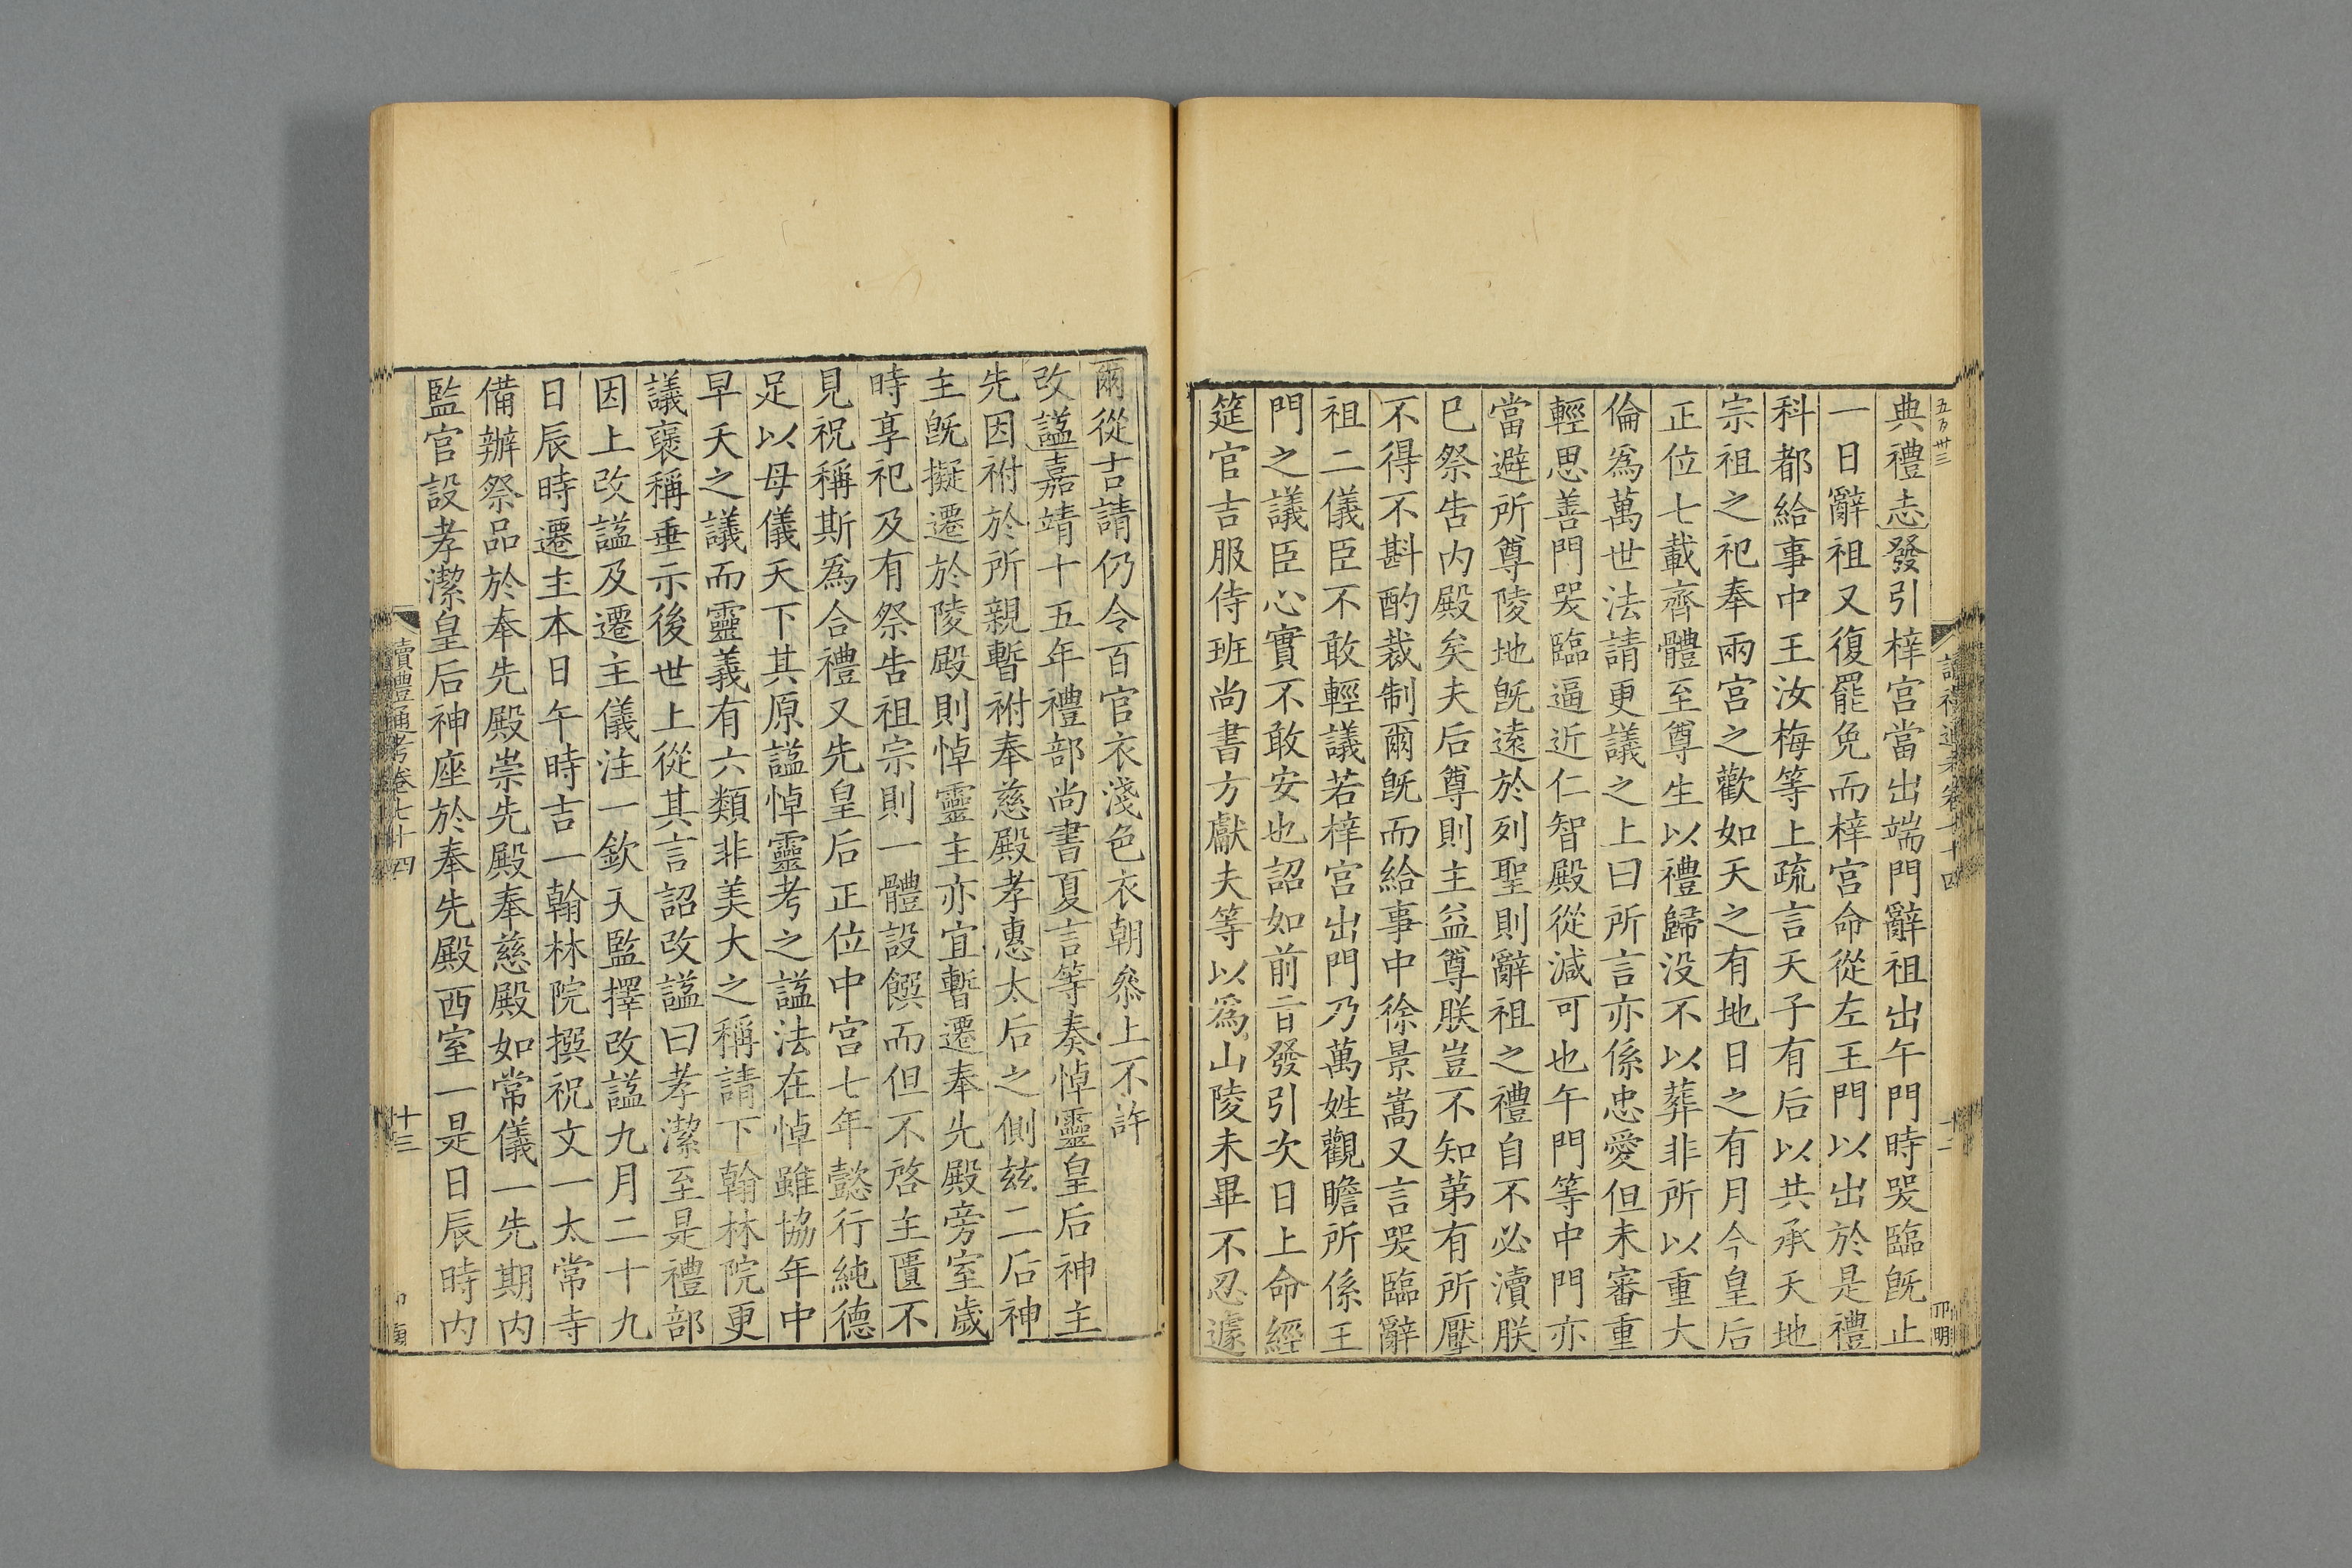 五百卅三
讀禮通考卷七十四
十二
典禮志發引梓宮當出端門辭祖出午門時哭臨旣止
一日辭祖又復罷免而梓宮命從左王門以出於是禮
科都給事中王汝梅等上疏言天子有后以共承天地
宗祖之祀奉兩宮之歡如天之有地日之有月今皇后
正位七載齊體至尊生以禮歸没不以葬非所以重大
倫爲萬世法請更議之上曰所言亦係忠愛但未審重
輕思善門哭臨逼近仁智殿從減可也午門等中門亦
當避所尊陵地旣遠於列聖則辭祖之禮自不必瀆朕
巳祭告内殿矣夫后尊則主益尊朕豈不知苐有所壓
不得不斟酌裁制爾旣而給事中徐景嵩又言哭臨辭
祖二儀臣不敢輕議若梓宮出門乃萬姓觀瞻所係王
門之議臣心實不敢安也詔如前㫖發引次日上命經
筵官吉服侍班尚書方獻夫等以爲山陵未畢不忍遽
爾從吉請仍令百官衣淺色衣朝叅上不許
改諡嘉靖十五年禮部尚書夏言等奏悼靈皇后神主
先因祔於所親暫祔奉慈殿孝惠太后之側兹二后神
主旣擬遷於陵殿則悼靈主亦宜暫遷奉先殿旁室歲
時享祀及有祭告祖宗則一體設饌而但不啓主匱不
見祝稱斯爲合禮又先皇后正位中宮七年懿行純德
足以母儀天下其原諡悼靈考之諡法在悼雖協年中
早夭之議而靈義有六類非美大之稱請下翰林院更
議褒稱垂示後世上從其言詔改諡曰孝潔至是禮部
因上改諡及遷主儀注一欽天監擇改諡九月二十九
日辰時遷主本日午時吉一翰林院撰祝文一太常寺
備辦祭品於奉先殿崇先殿奉慈殿如常儀一先期内
監官設孝潔皇后神座於奉先殿西室一是日辰時内
讀禮通考卷七十四
十三